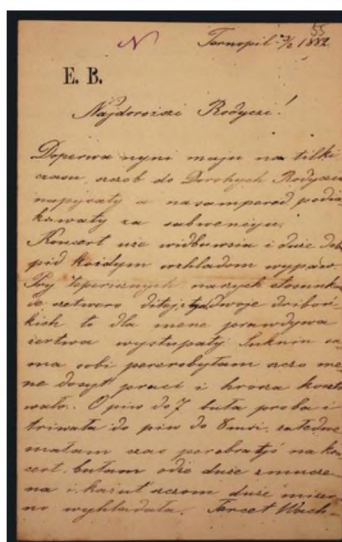 55
N Ternopil 2/2 1882
E. B.
Najdorożsi Rodyczi!
Doperwa nyni maju na tilki
czasu, szczob do Dorohych Rodycziw
napysaty a nasampered podia-
kowaty za subwencyu.
Koncert uże widbuwsia i duże dob
pid każdym wzhladom wypaw.
Pry teperisznych naszych stosunkach
de czetwero ditej, tyj dwoje driboń-
kich to dla mene prawdywa
żertwa wystupaty. Sukniu sa-
ma sobi pererobyłam szczo me-
ne dosyt praci i hrosza koszto-
wało. O piw do 7 buła proba i
triwała do piw do 8moi, zatedwo
małam czas perebratyś na kon-
cert, bułam otże duże zmucze-
na i każut szczom duże mizer-
no wyhladała. Tercet Wach-